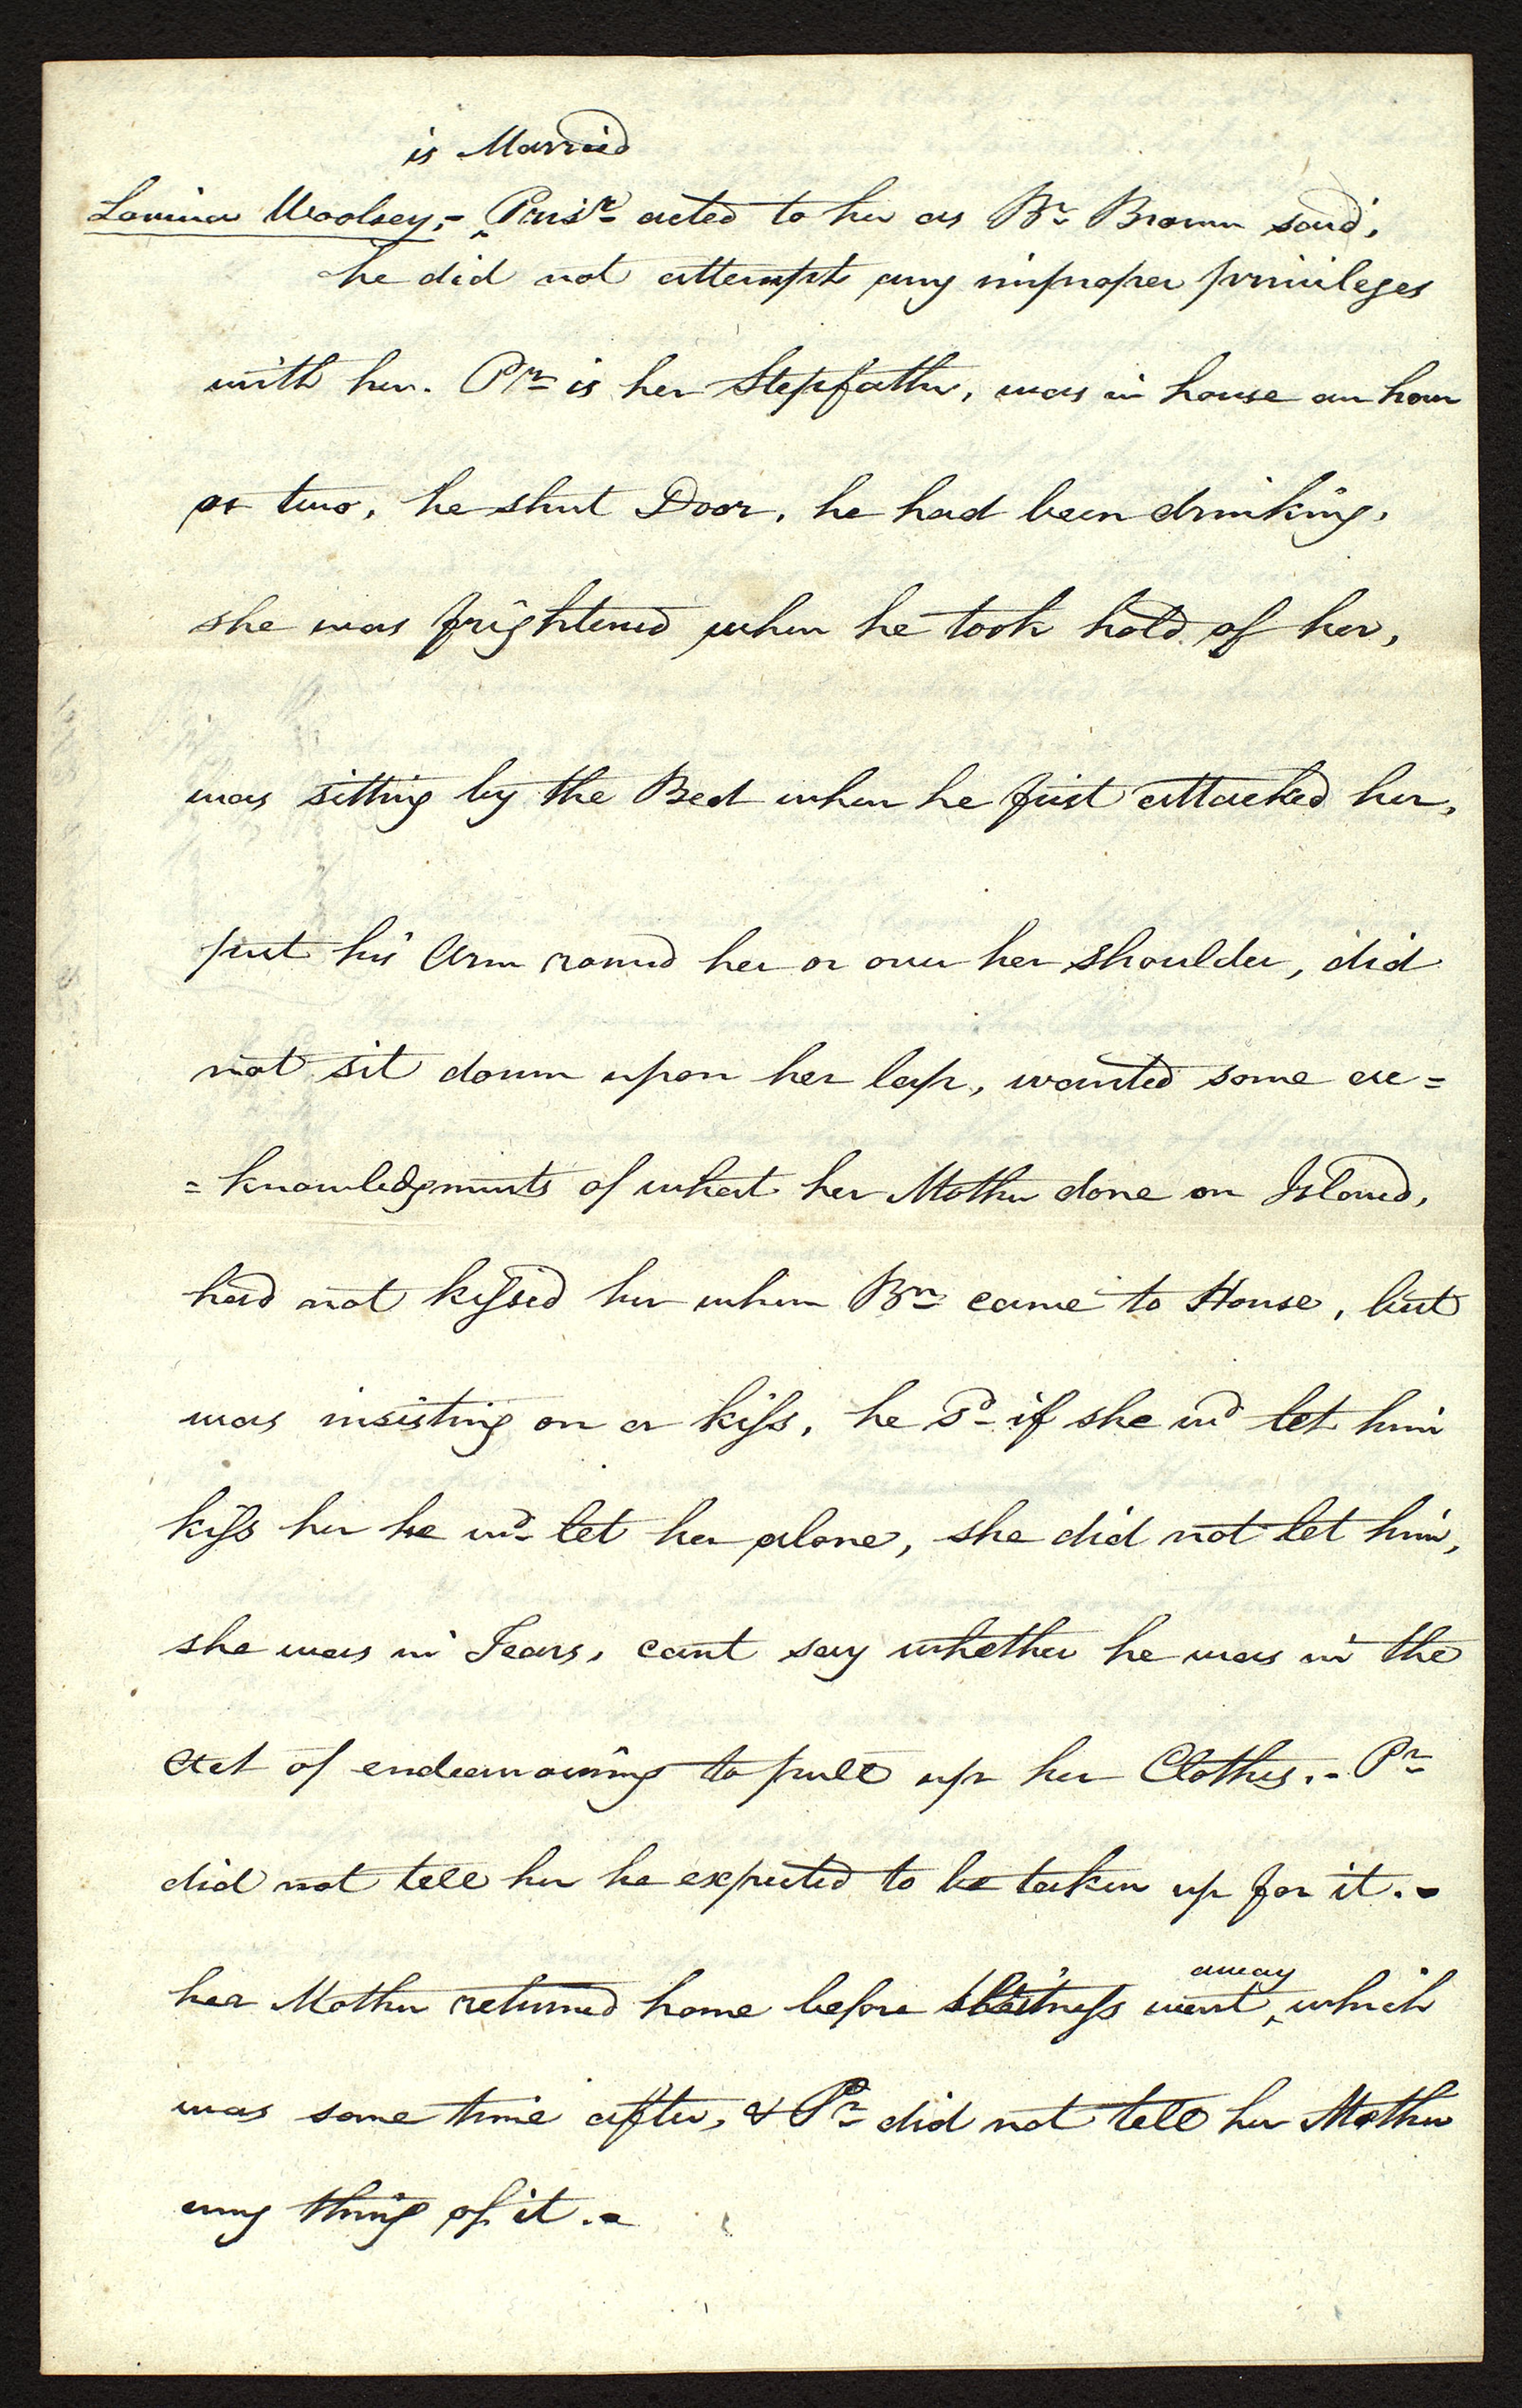 is Married
Lavina Woolsey,- Prisr. acted to her as Br. Brown said,
he did not attempt any improper privileges
with her. Pr. is her Stepfather, was in house an hour
or two, he shut Door, he had been drinking,
she was frightened when he took hold of her,
was sitting by the Bed when he first attacked her,
put his Arm round her or over her shoulder, did
not sit down upon her lap, wanted some ac=
=knowledgments of what her Mother done on Island,
had not kissed her when Bn. came to House, but
was insisting on a kiss, he sd. if she wd. let him
kiss her he wd. let her alone, she did not let him,
she was in Tears, cant say whether he was in the
Act of endeavouring to pull up her Clothes.- Pr.
did not tell her he expected to be taken up for it.-
away
her Mother returned home before Witness went, which
was some time after, & Pr. did not tell her Mother
any thing of it.-